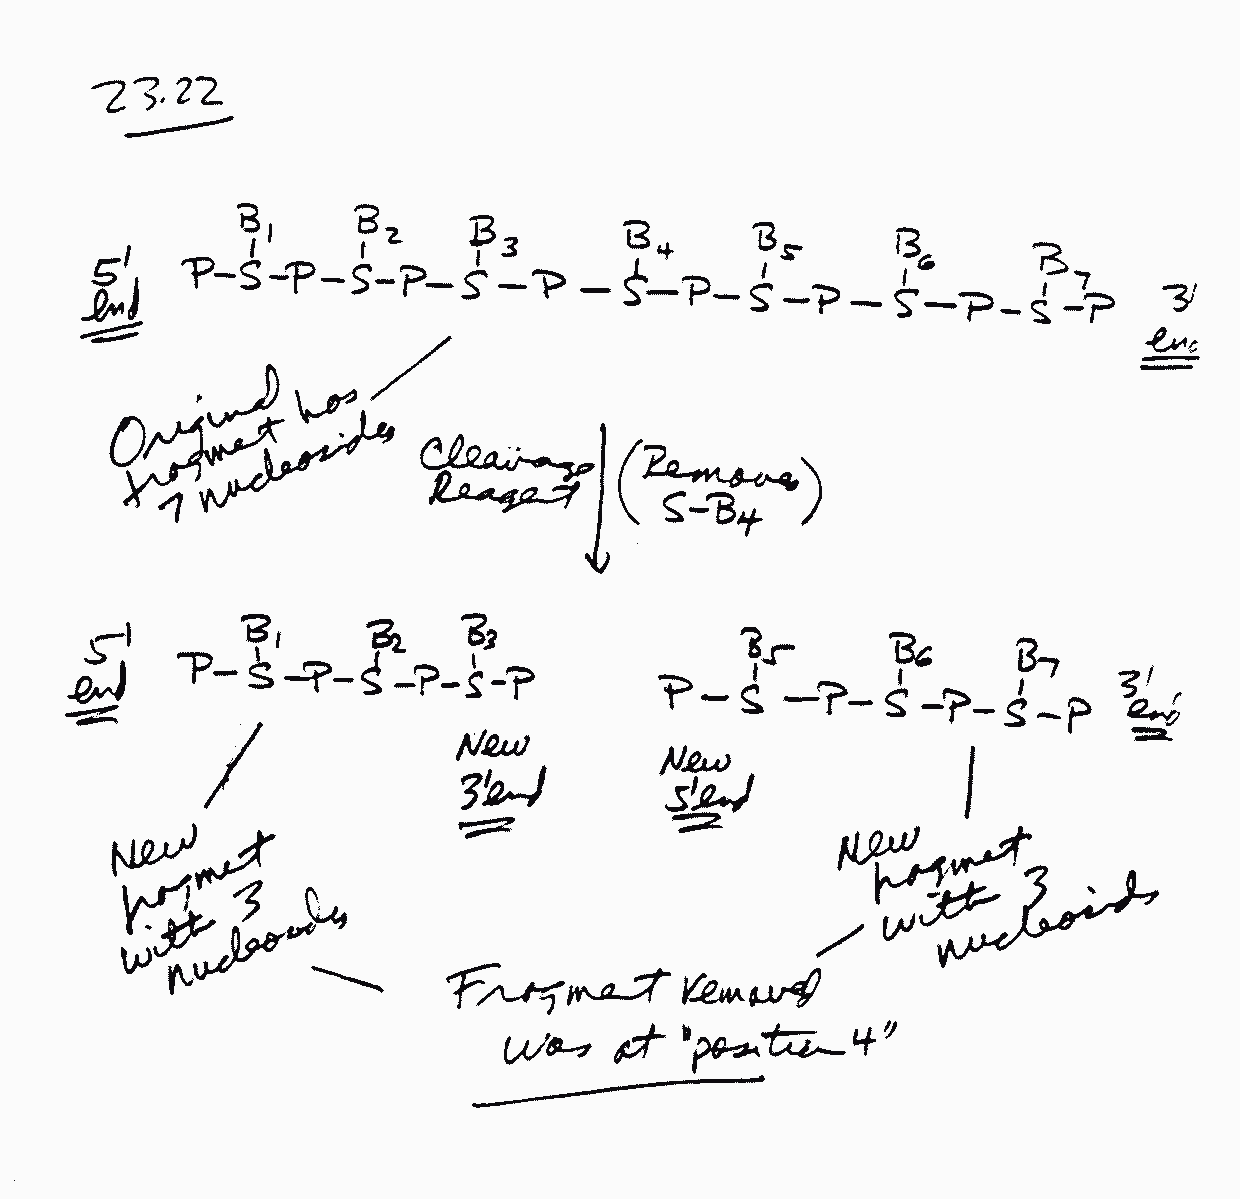 23.22
B1 B2 B3 B4 B5 B6 B7
5' end P-S-P-S-P-S-P-S-P-S-P-S-P-S-P 3' end
Original
fragment has
7 nucleosides
Cleavage
Reagent
(Remove
S-B4)
B1 B2 B3
5' end P-S-P-S-P-S-P
New
3' end
B5 B6 B7
P-S-P-S-P-S-P 3' end
New
5' end
New
fragment
with 3
nucleosides
New
fragment
with 3
nucleosides
Fragment removed
was at "position 4"